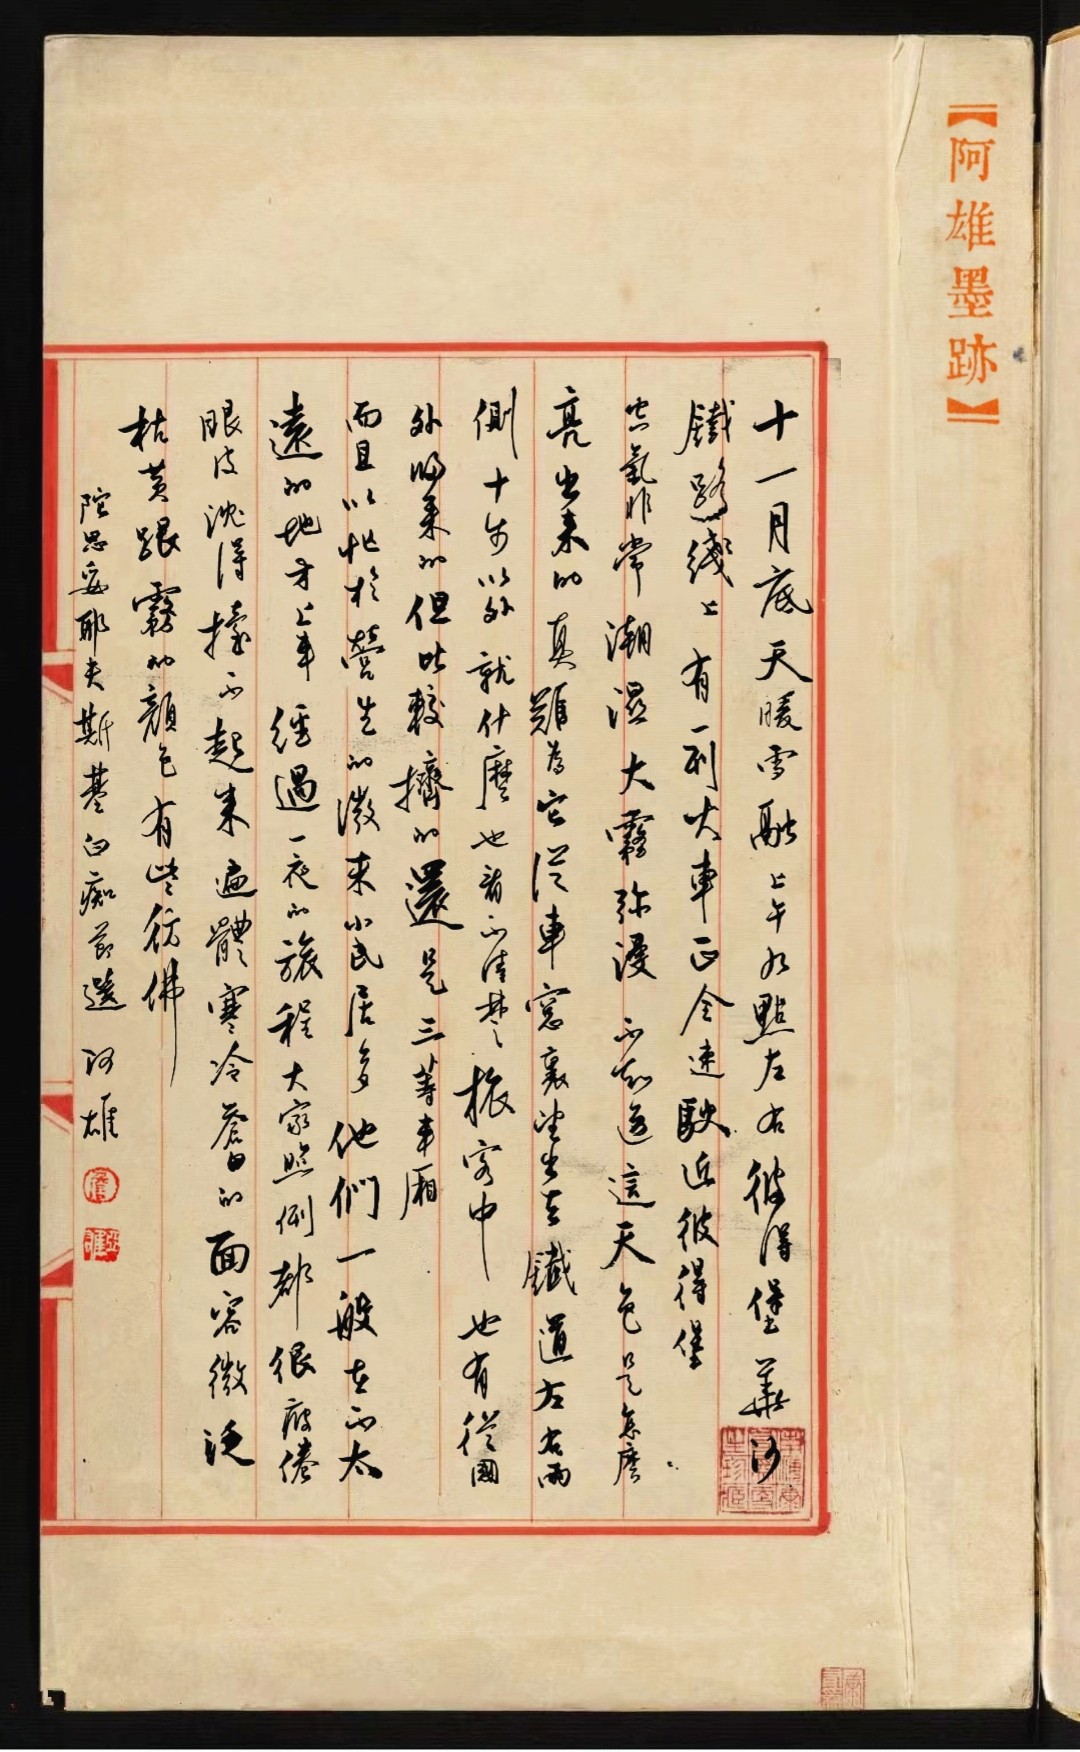 【阿雄墨跡】
十一月底天暖雪融上午九點左右彼得堡華沙
鐵路綫上有一列火車正全速駛近彼得堡
空氣非常潮濕大霧弥漫不知道這天色是怎麼
亮出來的真難為它從車窓裏望出去鐵道左右兩
側十步以外就什麼也看不清楚旅客中也有從國
外歸來的但比較擠的還是三等車厢
而且以忙於營生的微末小民居多他們一般在不太
遠的地方上車經過一夜的旅程大家照例都很疲倦
眼皮沈得擡不起来遍體寒冷蒼白的面容微泛
枯黄跟霧的顔色有些彷佛
陀思妥耶夫斯基白痴節選 阿雄